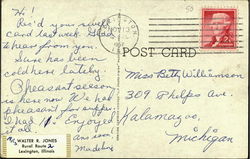 Hi!
Rec'd your sweet
card last week. Glad
to hear from you.
Sure has been
cold here lately.
Pheasant season
is here now We had
pheasant for supper
I had 1. Enjoyed
it all
ans soon
Madeline
WALTER R. JONES
Rural Route 2
Lexington, Illinois
POST CARD
Miss Betty Williamson
309 Phelps Ave.
Kalamazoo,
Michigan